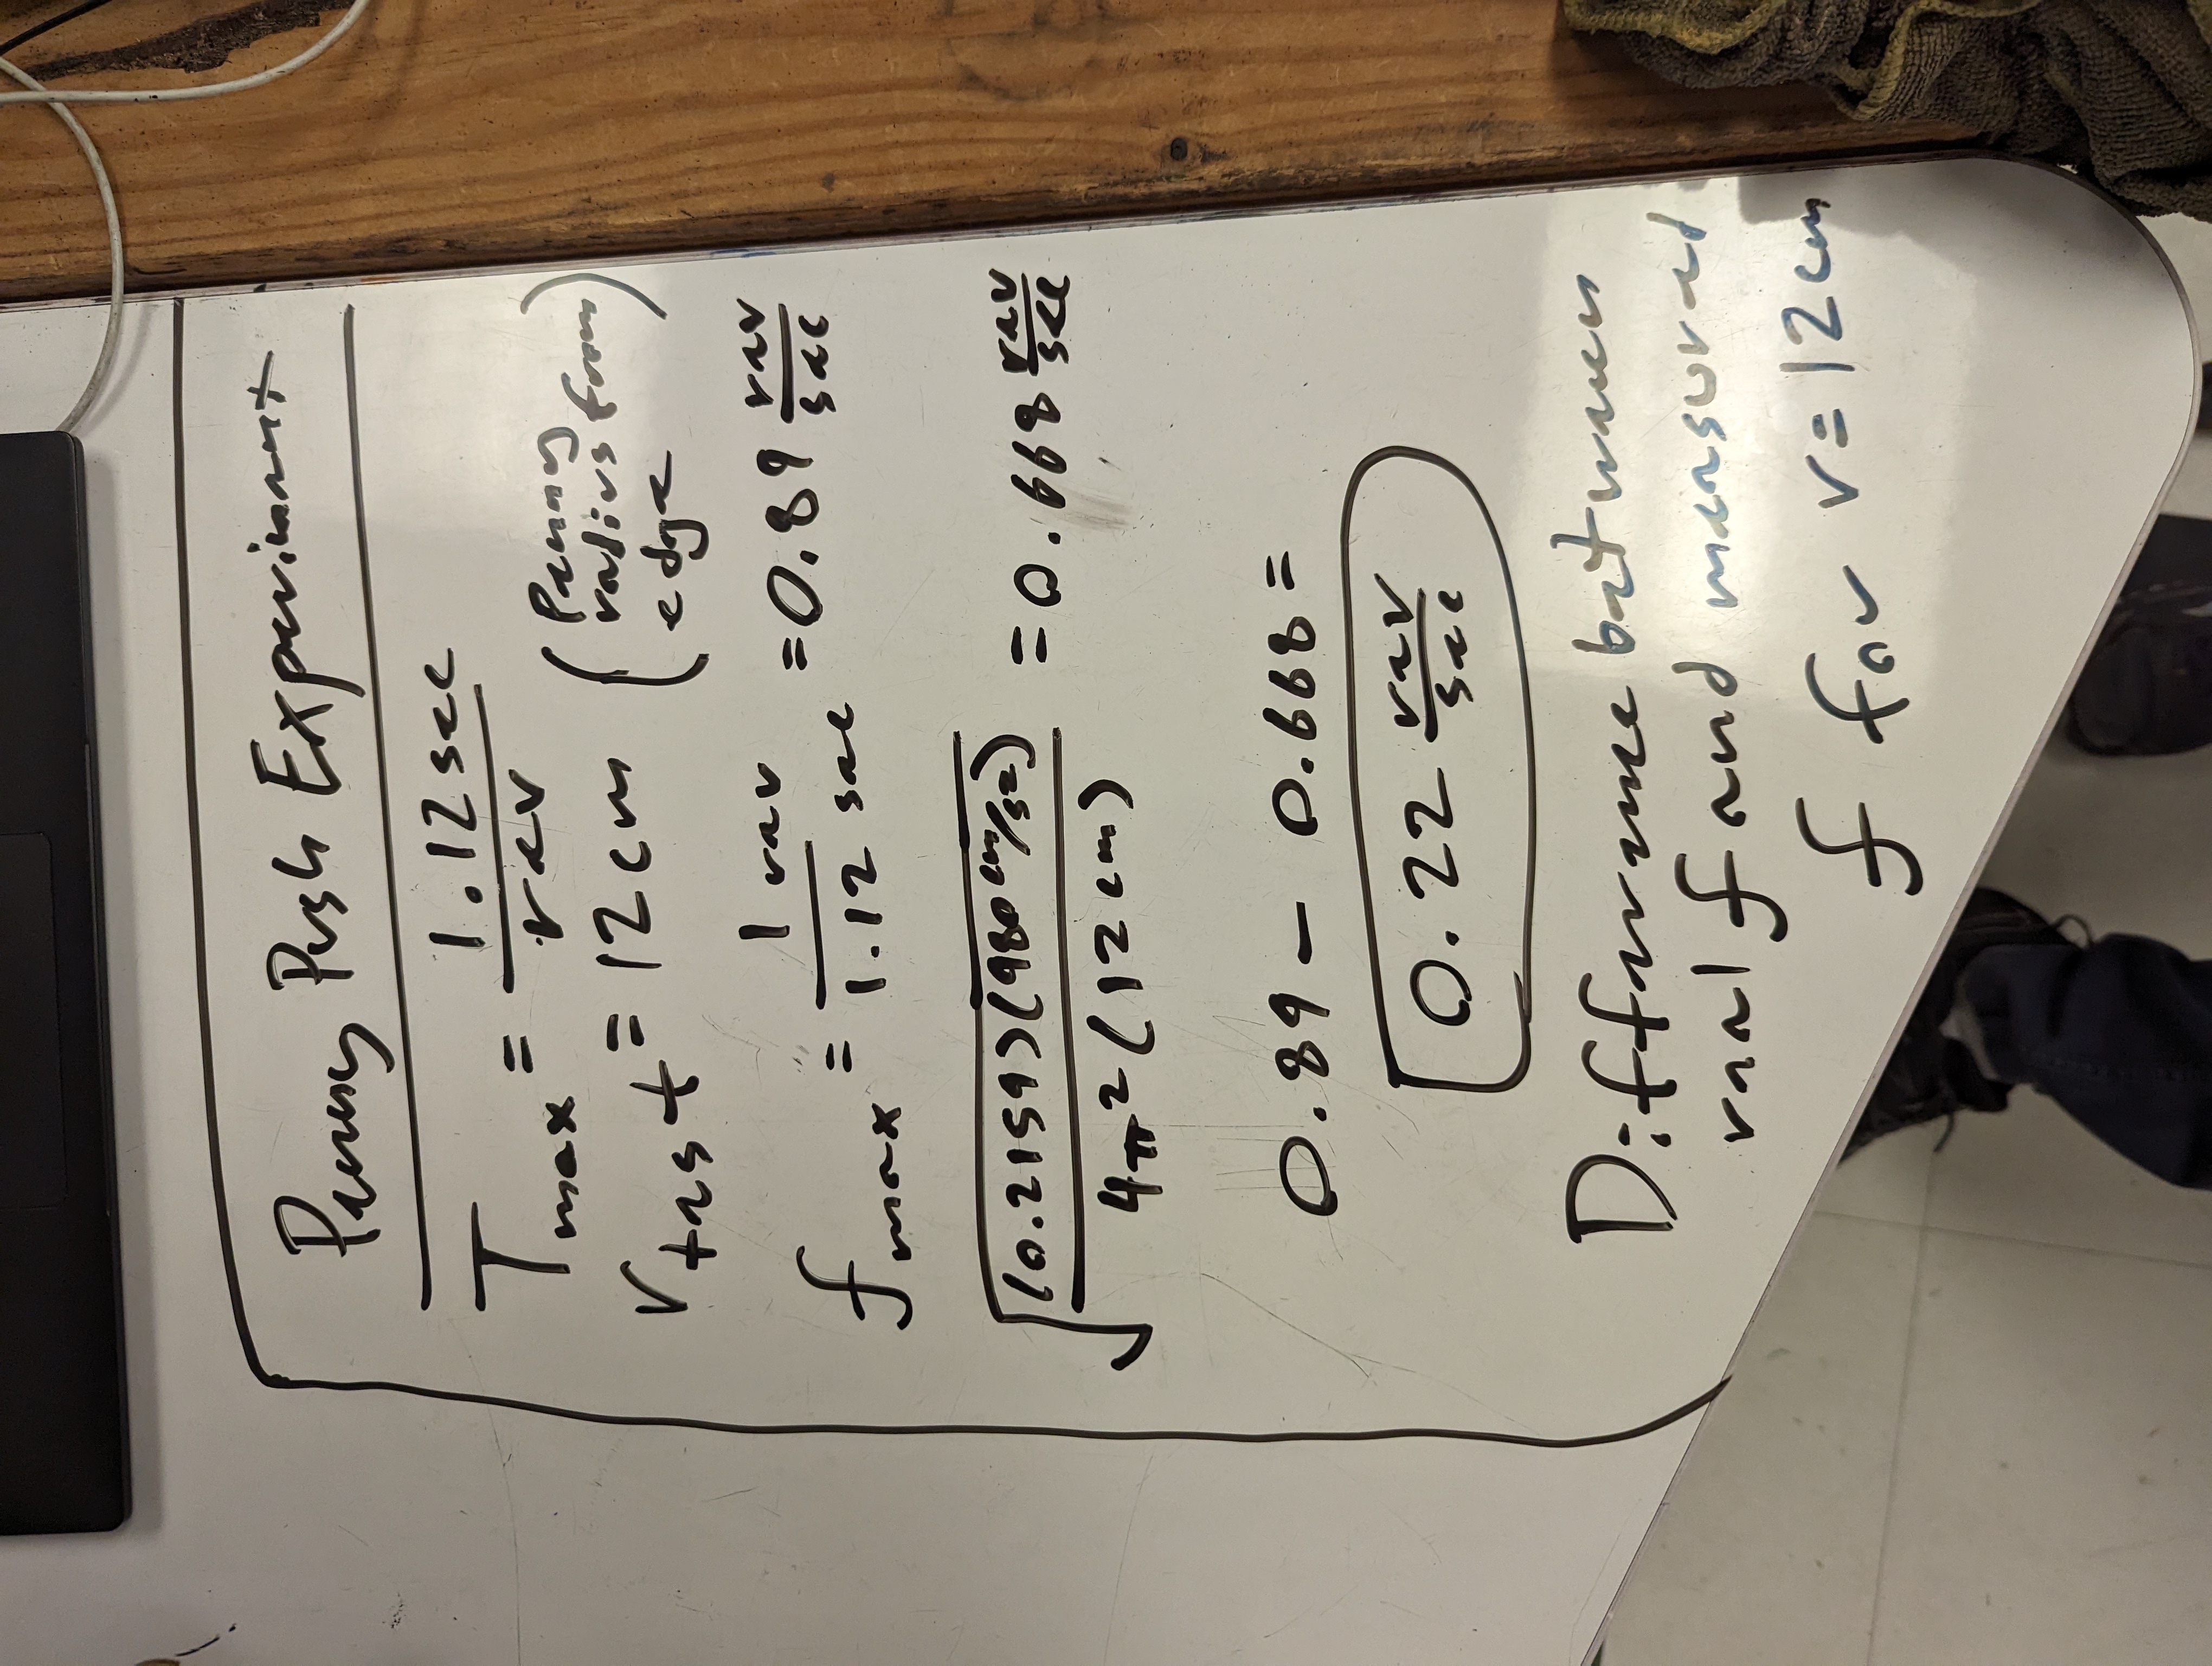 Penny Push Experiment
T_max = 1.12 sec / rev
r_test = 12 cm (Penny radius from edge)
f_max = 1 rev / 1.12 sec = 0.89 rev/sec
√((0.2159)(980 cm/s²) / 4π²(12 cm)) = 0.668 rev/sec
0.89 – 0.668 =
0.22 rev/sec
Difference between
real f and measured
f for r = 12 cm